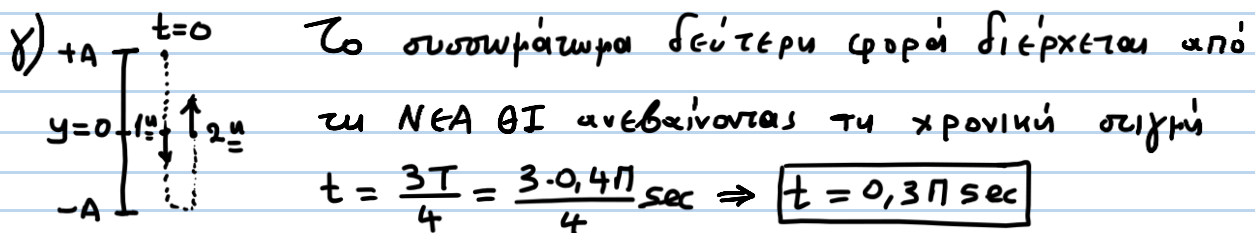 γ) +A t=0 Το συσσωμάτωμα δεύτερη φορά διέρχεται από
y=0 1η 2η τη ΝΕΑ ΘΙ ανεβαίνοντας τη χρονική στιγμή
-A t = 3T/4 = 3·0,4π/4 sec ⇒ t = 0,3π sec